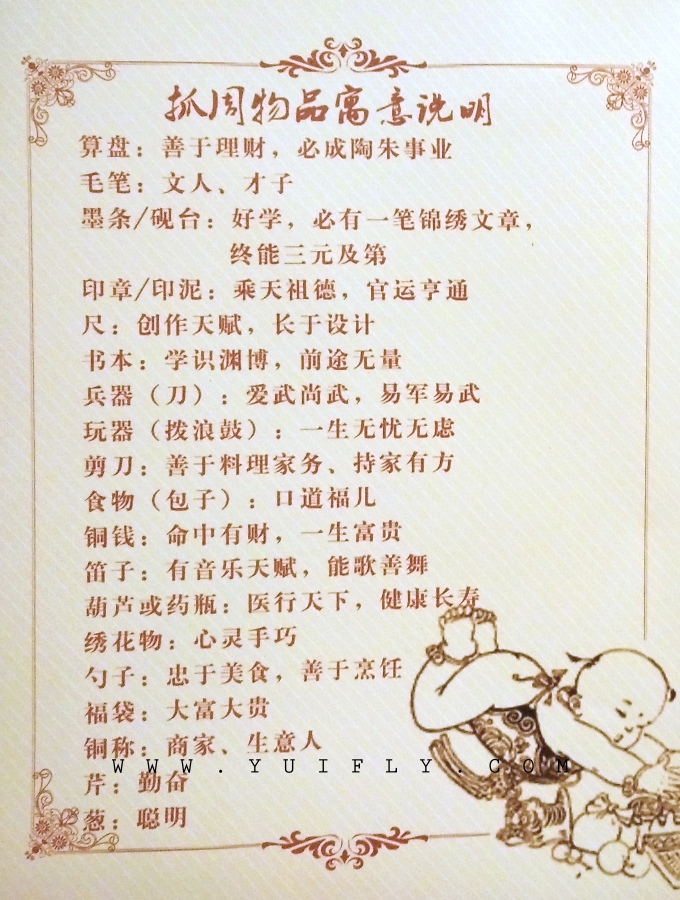 抓周物品寓意说明
算盘：善于理财，必成陶朱事业
毛笔：文人、才子
墨条/砚台：好学，必有一笔锦绣文章，
终能三元及第
印章/印泥：乘天祖德，官运亨通
尺：创作天赋，长于设计
书本：学识渊博，前途无量
兵器（刀）：爱武尚武，易军易武
玩器（拨浪鼓）：一生无忧无虑
剪刀：善于料理家务、持家有方
食物（包子）：口道福儿
铜钱：命中有财，一生富贵
笛子：有音乐天赋，能歌善舞
葫芦或药瓶：医行天下，健康长寿
绣花物：心灵手巧
勺子：忠于美食，善于烹饪
福袋：大富大贵
铜称：商家、生意人
WWW.YUIFLY.COM
芹：勤奋
葱：聪明